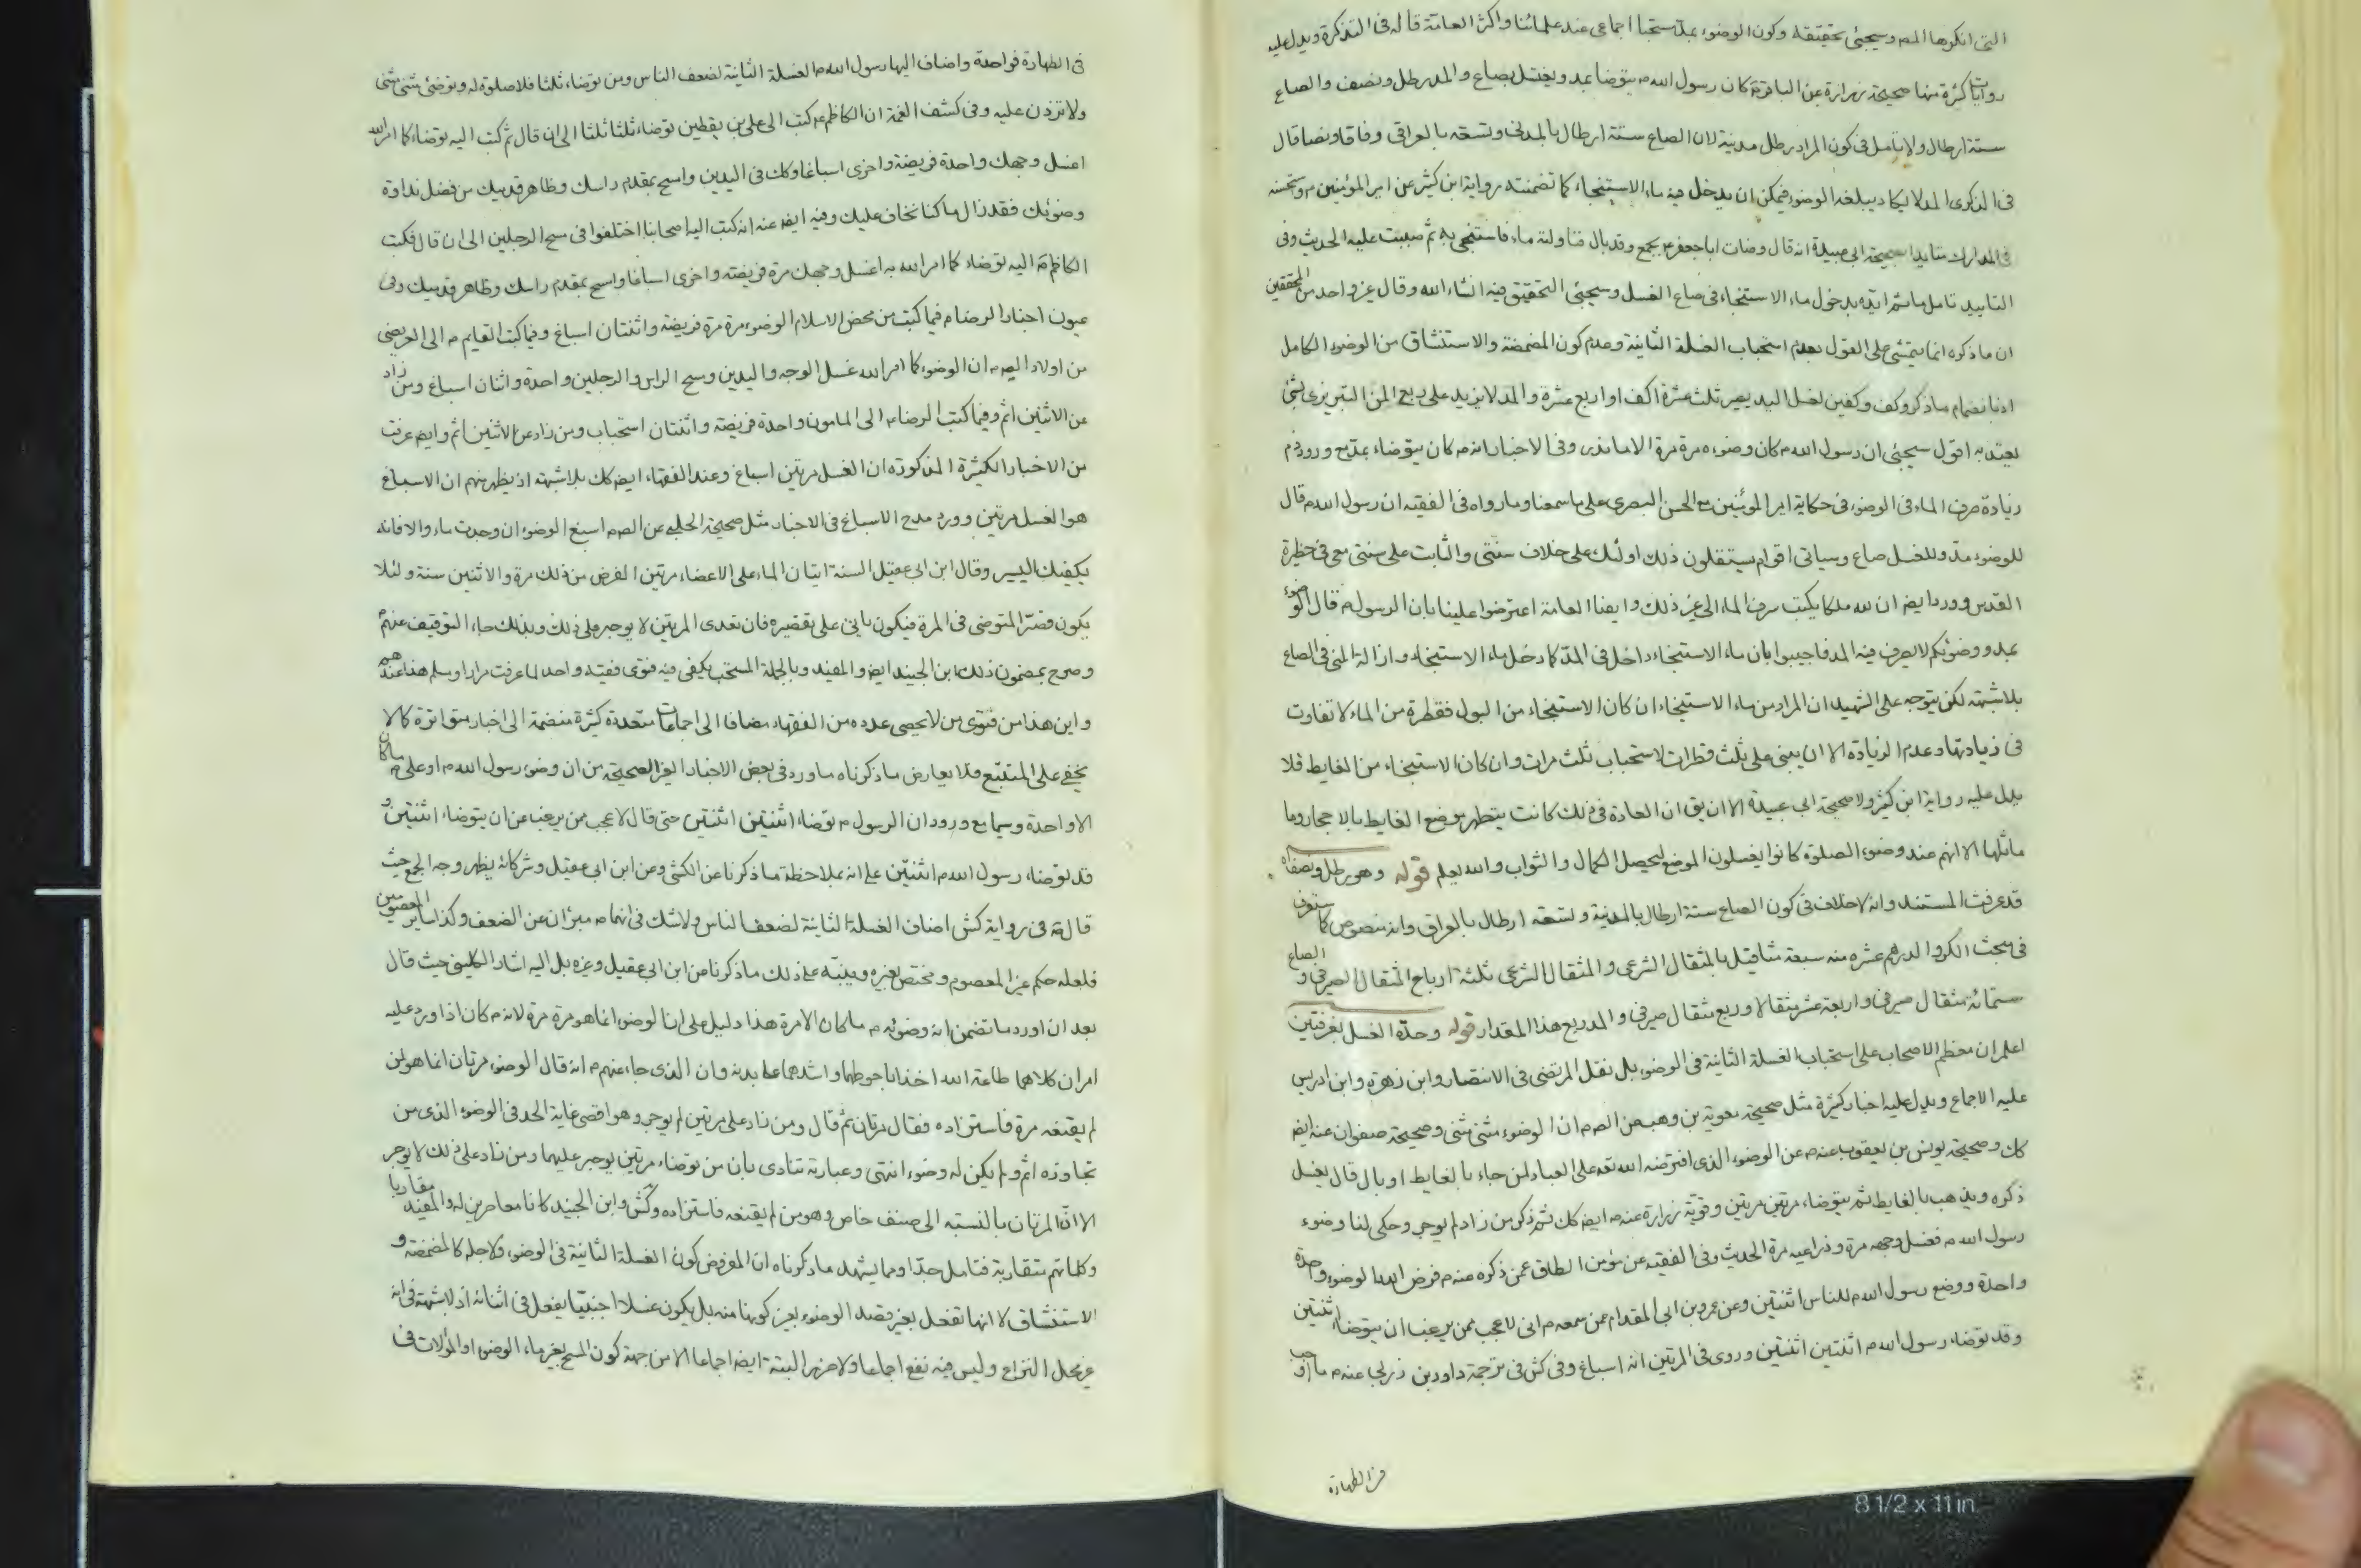 التى انكرها المصه وسيجئى تحقيقه وكون الوضوء بمد مستحبا اجماعى عند علمائنا واكثر العامة قاله فى التذكرة ويدل عليه
روايات كثيرة منها صحيحة زرارة عن الباقر ع كان رسول الله ص يتوضا بمد ويغتسل بصاع والمد رطل ونصف والصاع
ستة ارطال ولا تامل فى كون المراد رطل مدينة لان الصاع ستة ارطال بالمدنى وتسعة بالعراقى وفاقا ونصا قال
فى الذكرى المد لا يكاد يبلغه الوضوء فيمكن ان يدخل فيه ماء الاستنجاء كما تضمنته رواية ابن كثير عن امير المؤمنين ع واستحسنه
فى المدارك متايدا بصحيحة ابى عبيدة انه قال وضات اباجعفر ع بجمع وقد بال فناولته ماء فاستنجى به ثم صببت عليه الحديث وفى
التاييد تامل ما ثم ايده بدخول ماء الاستنجاء فى صاع الغسل وسيجئى التحقيق فيه انشاء الله وقال غير واحد من المحققين
ان ما ذكره انما يتمشى على القول بعدم استحباب الغسلة الثانية وعدم كون المضمضة والاستنشاق من الوضوء الكامل
اذ بانضمام ما ذكر وكف وكفين لغسل اليد يصير ثلث عشرة اكف او اربع عشرة والمد لا يزيد على ربع المن التبريزى بشئ
يعتد به اقول سيجئى ان رسول الله ص كان وضوءه مرة مرة الا ما ندر وفى الاخبار انه ص كان يتوضاء بمد مع ورود ذم
زيادة صرف الماء فى الوضوء فى حكاية امير المؤمنين مع الحسن البصرى على ما سمعنا وما رواه فى الفقيه ان رسول الله ص قال
للوضوء مد وللغسل صاع وسياتى اقوام يستقلون ذلك اولئك على خلاف سنتى والثابت على سنتى معى فى حظيرة
القدس وورد ايضا ان لله ملكا يكتب سرف الماء الى غير ذلك وايضا العامة اعترضوا علينا بان الرسول ص قال الوضوء
بمد ووضوئكم لا يصرف فيه المد فاجيبوا بان ماء الاستنجاء داخل فى المد كما دخل ماء الاستنجاء وازالة المنى فى الصاع
بلاشبهة لكن يتوجه على الشهيد ان المراد من ماء الاستنجاء ان كان الاستنجاء من البول فقطرة من الماء لا تفاوت
فى زيادتها وعدم الزيادة الا ان يبنى على ثلث قطرات لاستحباب ثلث مرات وان كان الاستنجاء من الغايط فلا
يدل عليه رواية ابن كثير ولا صحيحة ابى عبيدة الا ان يق ان العادة فى ذلك كانت يتطهر موضع الغايط بالاحجار وما
ماثلها الا انهم عند وضوء الصلوة كانوا يغسلون الموضع ليحصل الكمال والثواب والله يعلم قوله وهو رطل ونصف اه
قد عرفت المستند وانه لا خلاف فى كون الصاع ستة ارطال بالمدنية وتسعة ارطال بالعراقى وانه منصوص كما ستعرف
فى مبحث الكر والدرهم عشره منه سبعة مثاقيل بالمثقال الشرعى والمثقال الشرعى ثلثة ارباع المثقال الصيرفى و الصاع
ستمائة مثقال صيرفى واربعة عشر مثقالا وربع مثقال صيرفى والمد ربع هذا المقدار قوله وحده الغسل بغرفتين
اعلم ان معظم الاصحاب على استحباب الغسلة الثانية فى الوضوء بل نقل المرتضى فى الانتصار وابن زهرة وابن ادريس
عليه الاجماع ويدل عليه اخبار كثيرة مثل صحيحة معوية بن وهب عن الصه ان الوضوء مثنى مثنى وصحيحة صفوان عنه ايضا
كك وصحيحة يونس بن يعقوب عنه ع عن الوضوء الذى افترضه الله تعه على العباد لمن جاء بالغايط او بال قال يغسل
ذكره ويذهب بالغايط ثم يتوضاء مرتين مرتين وقوية زرارة عنه ع ايضه كك ثم ذكر من زاد لم يوجر وحكى لنا وضوء
رسول الله ص فغسل وجهه مرة وذراعيه مرة الحديث وفى الفقيه عن مؤمن الطاق عمن ذكره عنه ع فرض الله الوضوء واحدة
واحدة ووضع رسول الله ص للناس اثنتين وعن عمرو بن ابى المقدام عمن سمعه ع انى لاعجب ممن يرغب ان يتوضاء اثنتين
وقد توضاء رسول الله ص اثنتين اثنتين وروى فى المرتين انه اسباغ وفى كش فى ترجمة داود بن زربى عنه ع ما اوجب
من الطهارة
فى الطهارة فواحدة واضاف اليها رسول الله ص الغسلة الثانية لضعف الناس ومن توضاء ثلثا فلا صلوة له وتوضئ مثنى مثنى
ولا تزدن عليه وفى كشف الغمة ان الكاظم ع كتب الى على بن يقطين توضاء ثلثا ثلثا الى ان قال ثم كتب اليه توضاء كما امر الله
اغسل وجهك واحدة فريضة واخرى اسباغا وكك فى اليدين وامسح بمقدم راسك وظاهر قدميك من فضل نداوة
وضوئك فقد زال ما كنا نخاف عليك وفيه ايضه عنه انه كتب اليه اصحابنا اختلفوا فى مسح الرجلين الى ان قال فكتب
الكاظم ع اليه توضاء كما امر الله به اغسل وجهك مرة فريضة واخرى اسباغا وامسح بمقدم راسك وظاهر قدميك وفى
عيون اخبار الرضا ع فيما كتب من محض الاسلام الوضوء مرة مرة فريضة واثنتان اسباغ وفيما كتب القايم ع الى العريضى
من اولاد الصه ان الوضوء كما امر الله غسل الوجه واليدين ومسح الراس والرجلين واحدة واثنان اسباغ ومن زاد
عن الاثنين اثم وفيما كتب الرضا ع الى المامون واحدة فريضة واثنتان استحباب ومن زاد عن الاثنين اثم وايضه عرفت
من الاخبار الكثيرة المذكورة ان الغسل مرتين اسباغ وعند الفقهاء ايضه كك بلاشبهة اذ يظهر منهم ان الاسباغ
هو الغسل مرتين وورد مدح الاسباغ فى الاخبار مثل صحيحة الحلبى عن الصه اسبغ الوضوء ان وجدت ماء والا فانه
يكفيك اليسير وقال ابن ابى عقيل السنة اتيان الماء على الاعضاء مرتين الفرض من ذلك مرة والاثنين سنة ولئلا
يكون قصر المتوضى فى المرة فيكون ياتى على تقصيره فان تعدى المرتين لا يوجر على ذلك وبذلك جاء التوقيف عنهم
وصرح بمضمون ذلك ابن الجنيد ايضه والمفيد وبالجملة المستحب يكفى فيه فتوى فقيه واحد لما عرفت مرارا وسلم هذا عندهم
واين هذا من فتوى من لا يحصى عدده من الفقهاء مضافا الى اجماعات متعددة كثيرة منضمة الى اخبار متواترة كما لا
يخفى على المتتبع فلا يعارض ما ذكرناه ما ورد فى بعض الاخبار الغير الصحيحة من ان وضوء رسول الله ص او على ع ما كان
الا واحدة وسيما مع ورود ان الرسول ص توضاء اثنتين اثنتين حتى قال لاعجب من يرغب عن ان يتوضاء اثنتين و
قد توضاء رسول الله ص اثنتين على انه بملاحظة ما ذكرنا عن الكشى وعن ابن ابى عقيل وشركائه يظهر وجه الجمع حيث
قال ع فى رواية كش اضاف الغسلة الثانية لضعف الناس ولاشك فى انهما ع مبرآن عن الضعف وكذا ساير المعصومين
فلعله حكم غير المعصوم ومختص بغيره وينبه على ذلك ما ذكرنا من ابن ابى عقيل وغيره بل اليه اشار الكلينى حيث قال
بعد ان اورد ما تضمن انه وضوئه ع ما كان الا مرة هذا دليل على ان الوضوء انما هو مرة مرة لانه ص كان اذا ورد عليه
امران كلاهما طاعة الله اخذ باحوطهما واشدهما على بدنه وان الذى جاء عنهم ع انه قال الوضوء مرتان انما هو لمن
لم يقنعه مرة فاستزاده فقال مرتان ثم قال ومن زاد على مرتين لم يوجر وهو اقصى غاية الحد فى الوضوء الذى من
تجاوزه اثم ولم يكن له وضوء انتهى وعبارته تنادى بان من توضاء مرتين يوجر عليهما ومن زاد على ذلك لا يوجر
الا ان المرتان بالنسبة الى صنف خاص وهو من لم يقنعه فاستزاده وكش وابن الجنيد كانا معاصرين له والمفيد مقاربا
وكلماتهم متقاربة فتامل جدا ومما يشهد ما ذكرناه ان المفروض كون الغسلة الثانية فى الوضوء ولاجله كالمضمضة و
الاستنشاق لا انها تفعل بغير قصد الوضوء بغير كونها منه بل يكون غسلا اجنبيا يفعل فى اثنائه اذ لاشبهة فى انه
غير محل النزاع وليس فيه نفع اجماعا ولا ضرر البتة ايضه اجماعا الا من جهة كون المسح بغير ماء الوضوء او الموالات ف
8 1/2 x 11 in.